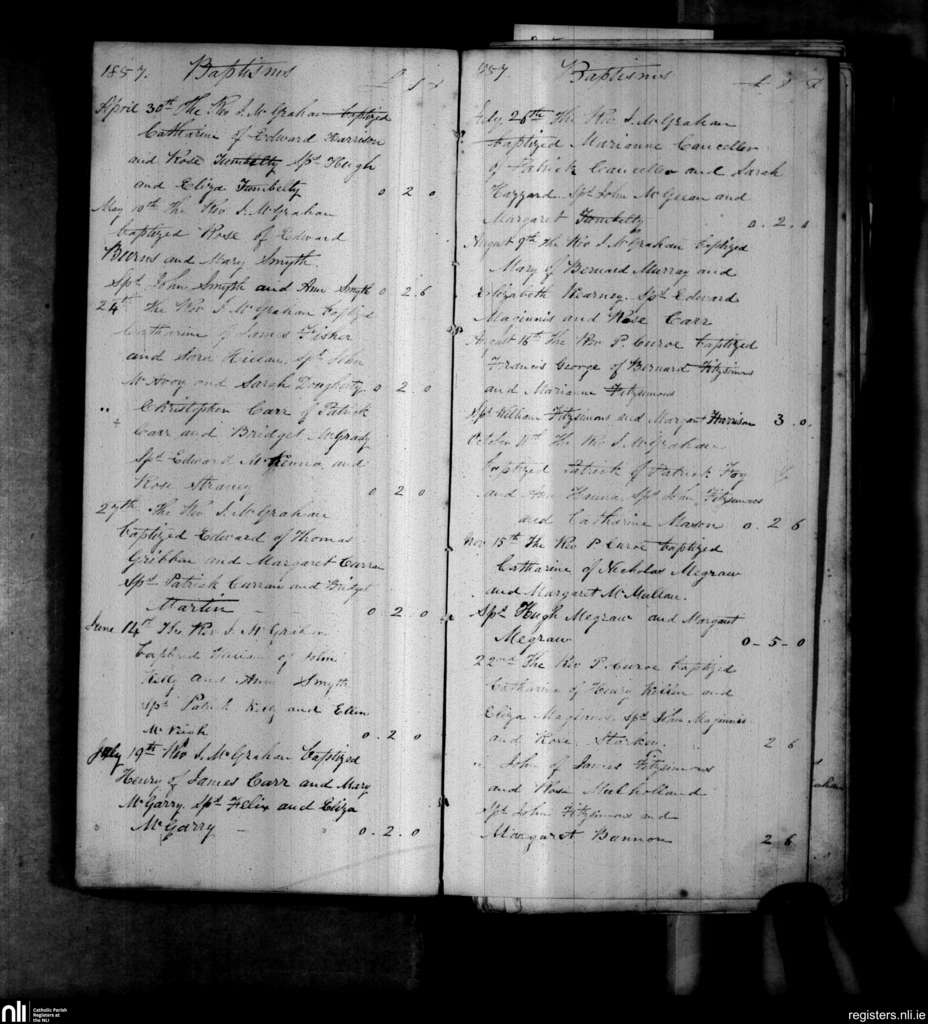 1857. Baptisms £ s d
April 30th The Rev J. McGrahan baptized
Catharine of Edward Harrison
and Rose Tumbelty Spt Hugh
and Eliza Tumbelty 0 2 0
May 19th The Rev J. McGrahan
baptized Rose of Edward
Burns and Mary Smyth.
Spt John Smyth and Ann Smyth 0 2.6
24th The Rev J. McGrahan baptized
Catharine of James Fisher
and Spt John
McAvoy and Sarah Dougherty 0 2 0
" Christopher Carr of Patrick
Carr and Bridget McGrady
Spt Edward McKenna and
Rose Straney 0 2 0
27th The Rev J. McGrahan
baptized Edward of Thomas
Gribbin and Margaret Curran
Spt Patrick Curran and Bridget
Martin 0 2 0
June 14th The Rev J. McGrahan
baptized of John
Kelly and Anne Smyth
Spt Patrick Kelly and Ellen
McVeigh 0.2 0
July 19th Rev J. McGrahan baptized
Henry of James Carr and Mary
McGarry. Spt Felix and Eliza
McGarry 0.2.0
1857 Baptisms £ s d
July 26th The Rev J. McGrahan
baptized Marianne Cancellor
of Patrick Cancellor and Sarah
Hazzard Spt John McGeean and
Margaret Tumbelty 0.2.0
August 9th The Rev J. McGrahan baptized
Mary of Bernard Murray and
Elizabeth Kearney. Spt Edward
Macinnis and Rose Carr
August 16th The Rev P. Curoe baptized
Francis George of Bernard Fitzsimons
and Marianne Fitzsimons
Spt William Fitzsimons and Margaret Harrison 3 0
October 11th The Rev J. McGrahan
baptized Patrick of Patrick Foy
and Ann Hanna. Spt John Fitzsimons
and Catharine Mason 0.2 6
Nov 15th The Rev P Curoe baptized
Catharine of Nicholas Megraw
and Margaret McMullan.
Spt Hugh Megraw and Margaret
Megraw 0-5-0
22nd The Rev P. Curoe baptized
Catharine of Henry and
Eliza Maginnis Spt John Maginnis
and Rose 2 6
" John of James Fitzsimons
and Rose Mulholland
Spt John Fitzsimons and
Margaret Bannon 2 6
nli Catholic Parish
Registers at
the NLI
registers.nli.ie